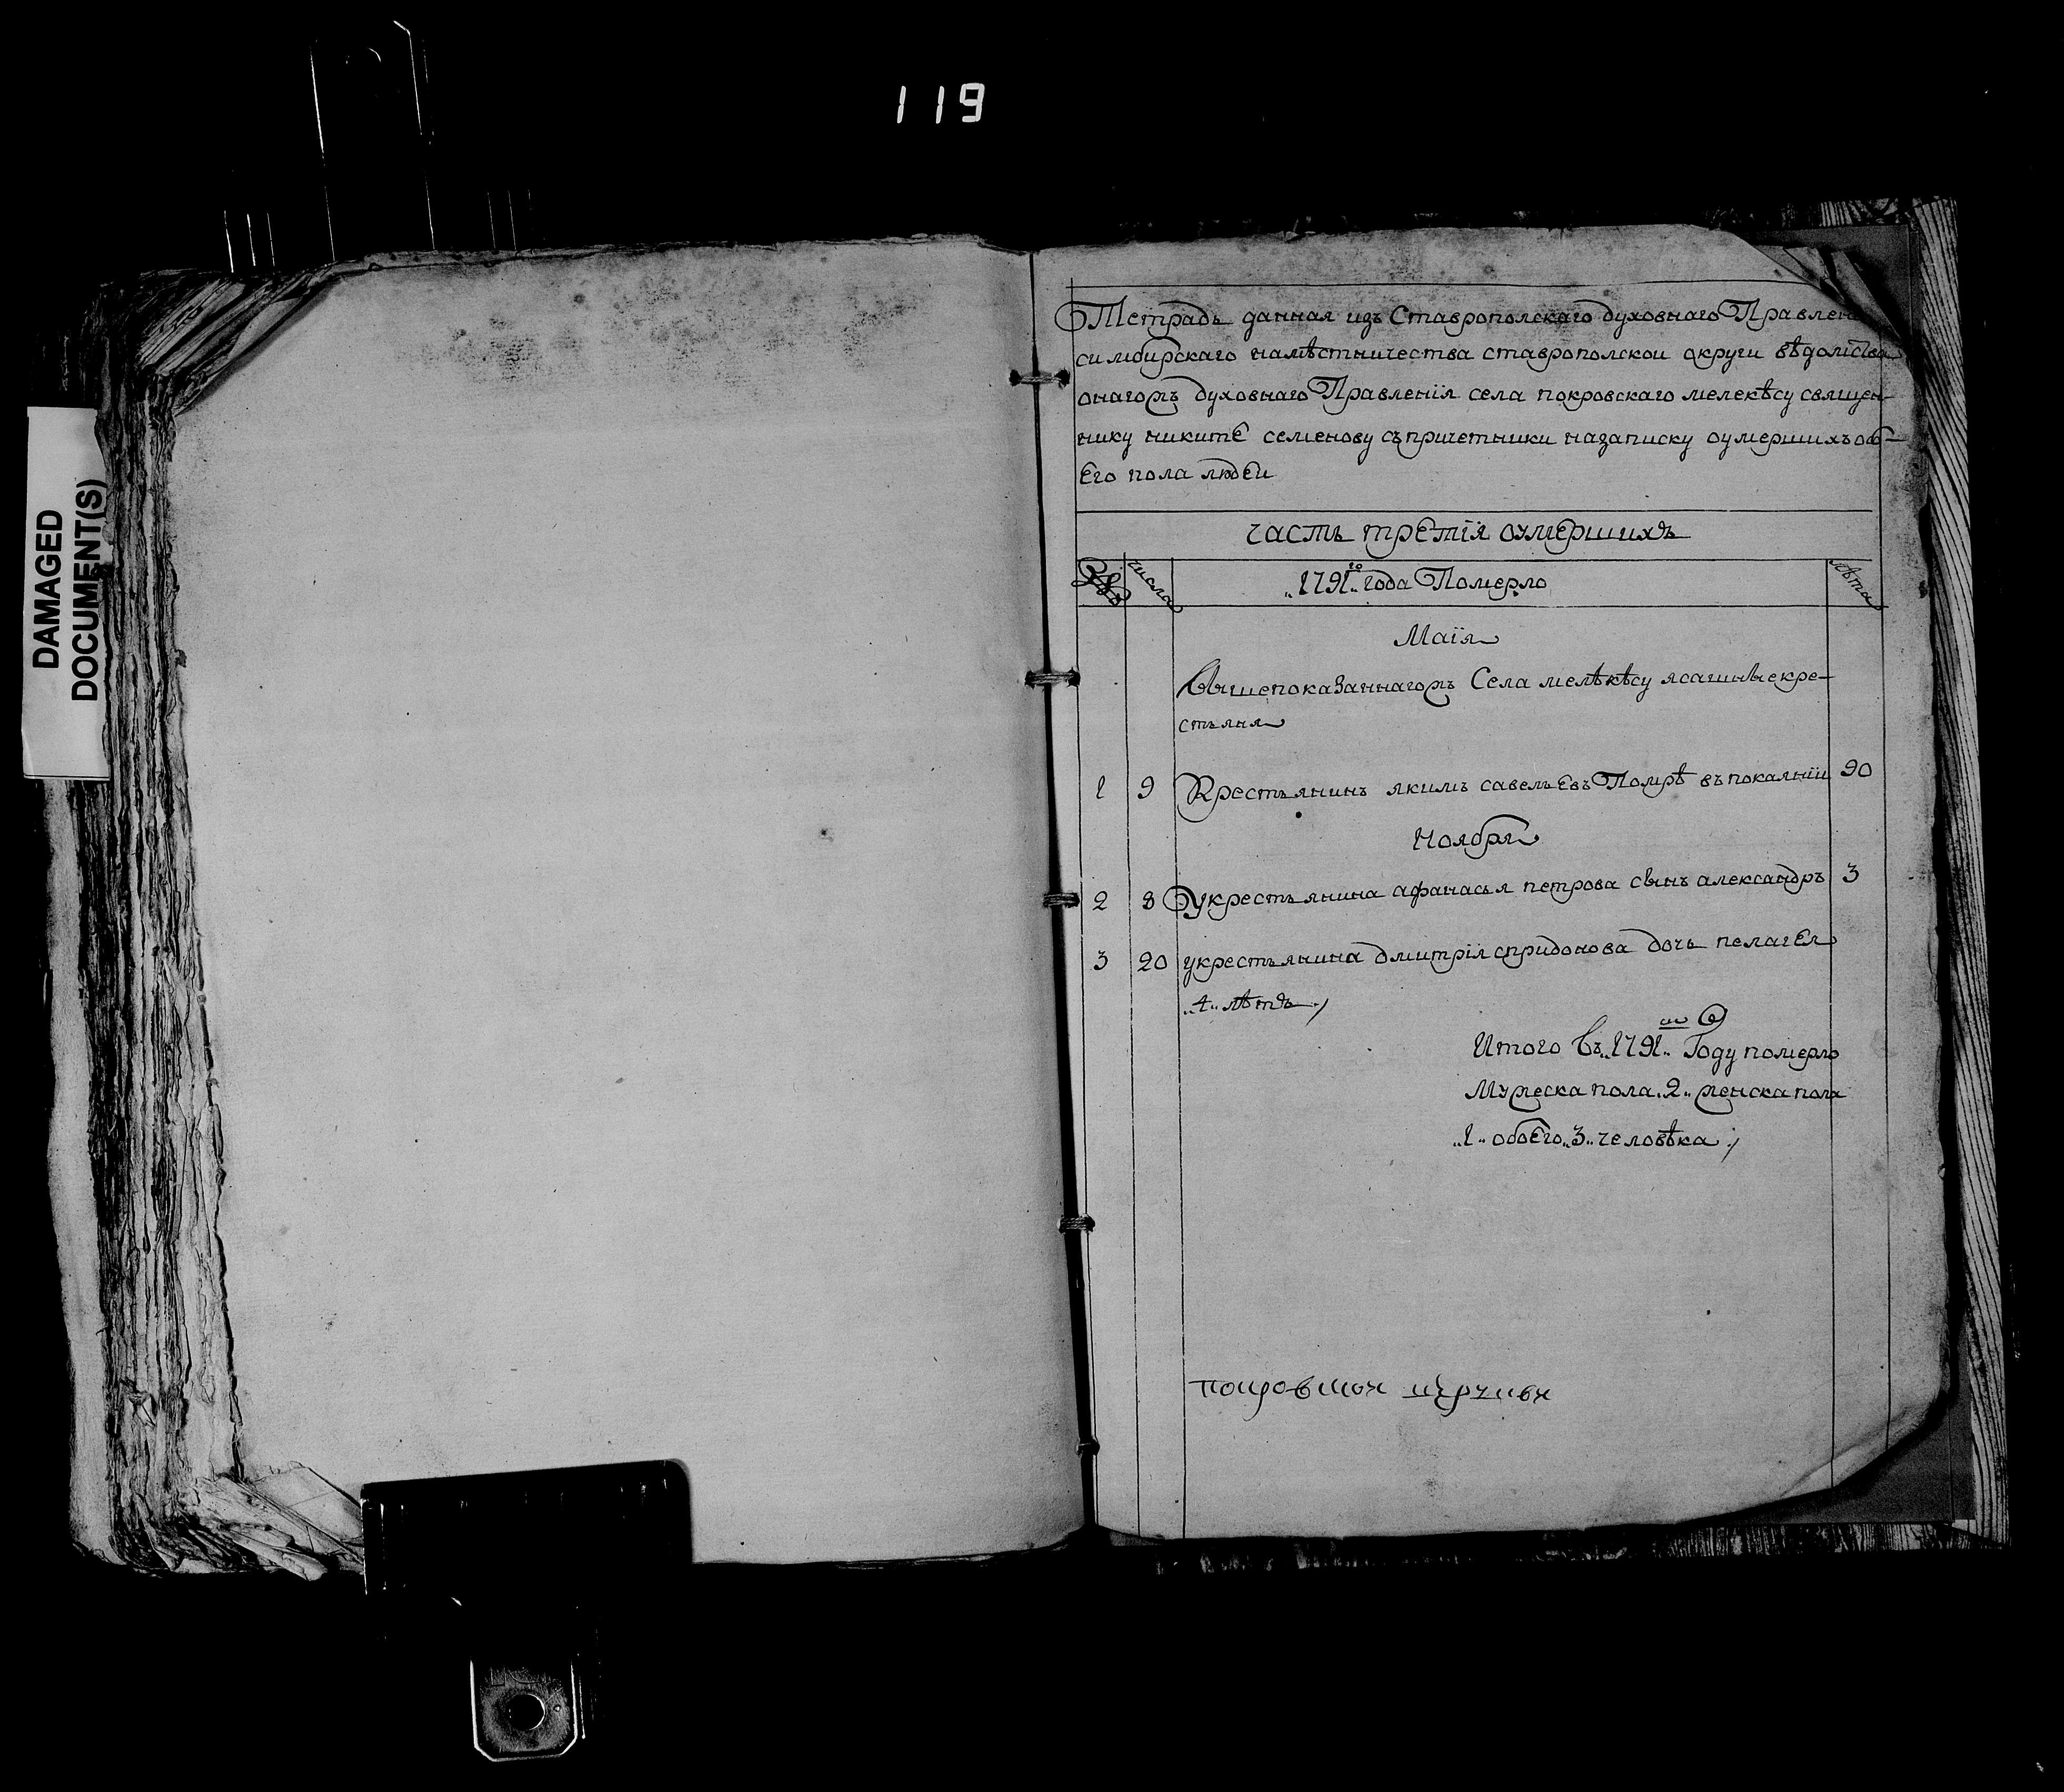 119
DAMAGED
DOCUMENT(S)
Тетрадь данная изъ Ставрополскаго духовнаго Правлен
симбирскаго намѣстничества ставрополскои округи вѣдомства
онагожъ духовнаго Правленїя села покровскаго мелекѣсу священ-
нику никите семенову съпричетники назаписку оумершихъ обо-
его пола людеи
часть третїя оумершихъ
числа
лѣта
„1791„го года Померло
Маїя
Вышепоказаннагожъ Села мелѣкѣсу ясашные кре-
стьяня
1 9 Крестьянинъ якимъ савельевъ Помрѣ въпокаянїи 90
Ноября
2 8 Укрестьянина афанасья петрова сынъ александръ 3
3 20 укрестьянина дмитрїя спридонова дочь пелагея
„4„ лѣтъ
Итого въ„1791„ Году померло
Мужеска пола„2„ женска пола
„1„ обоего„3„ человѣка
покровскои церкви